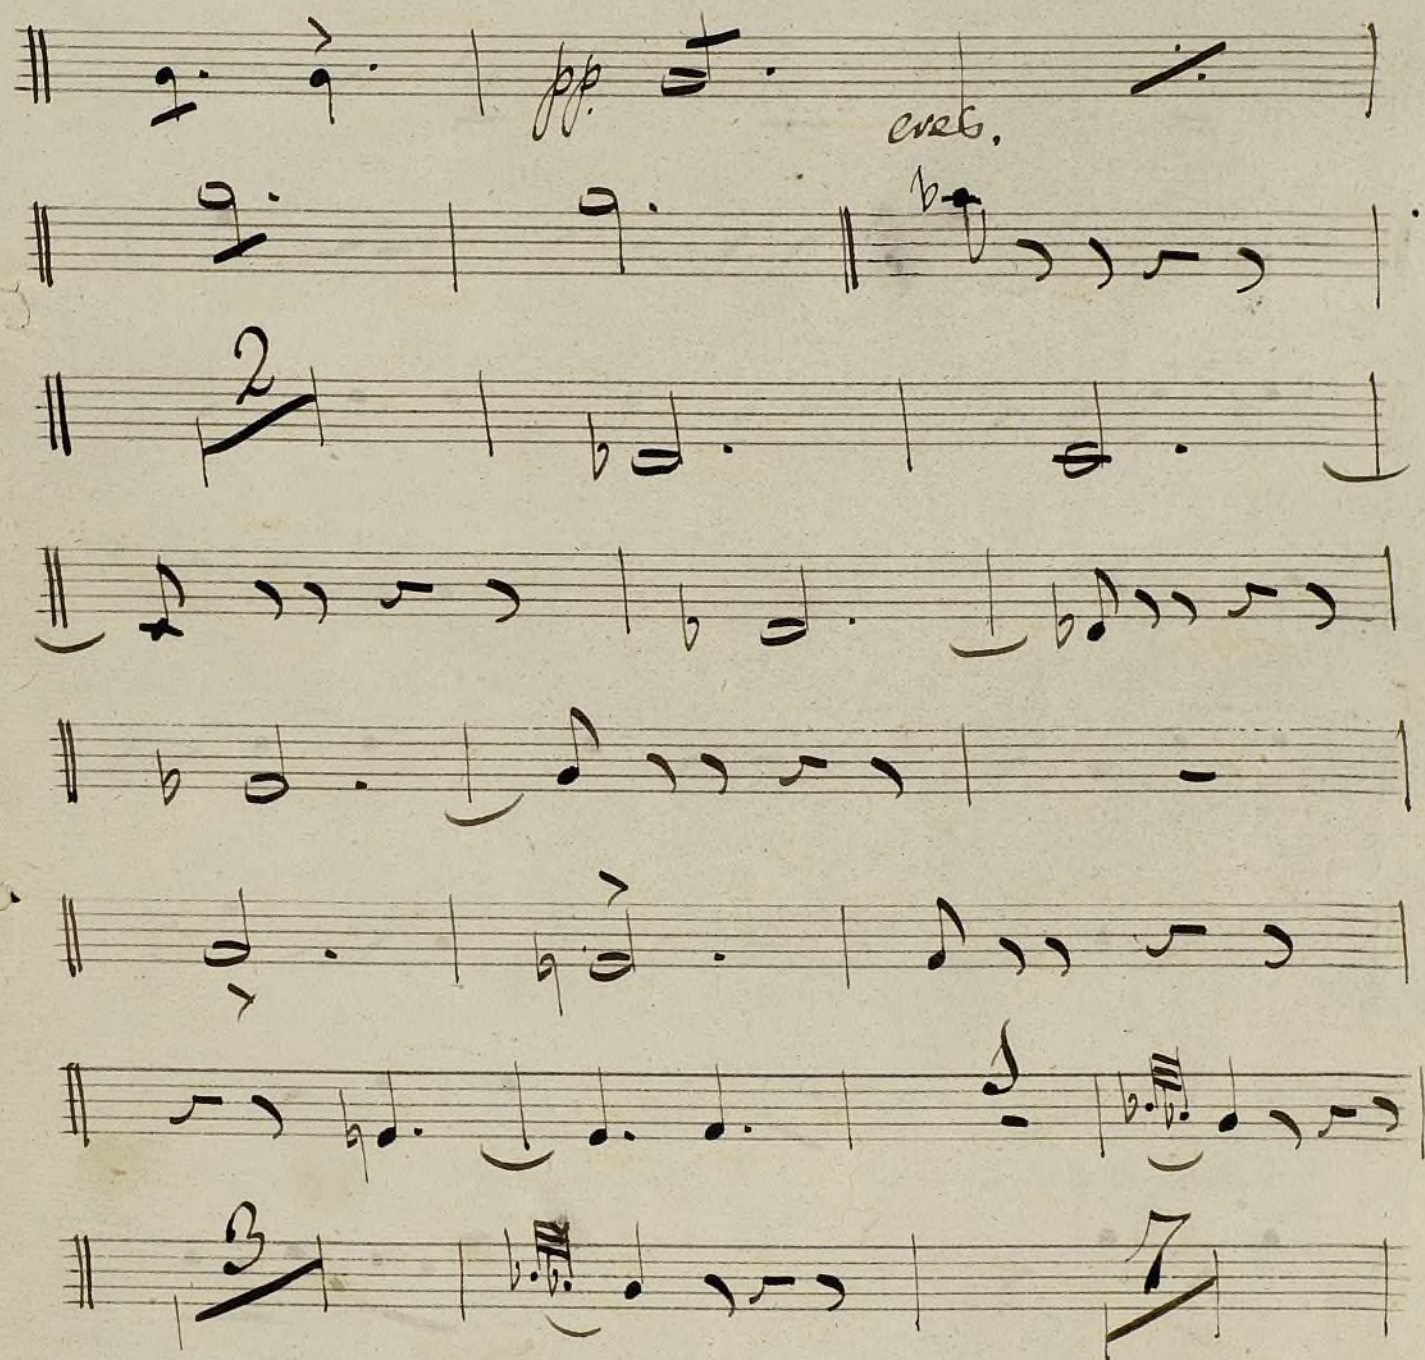 pp. cres.
2
1
3 7